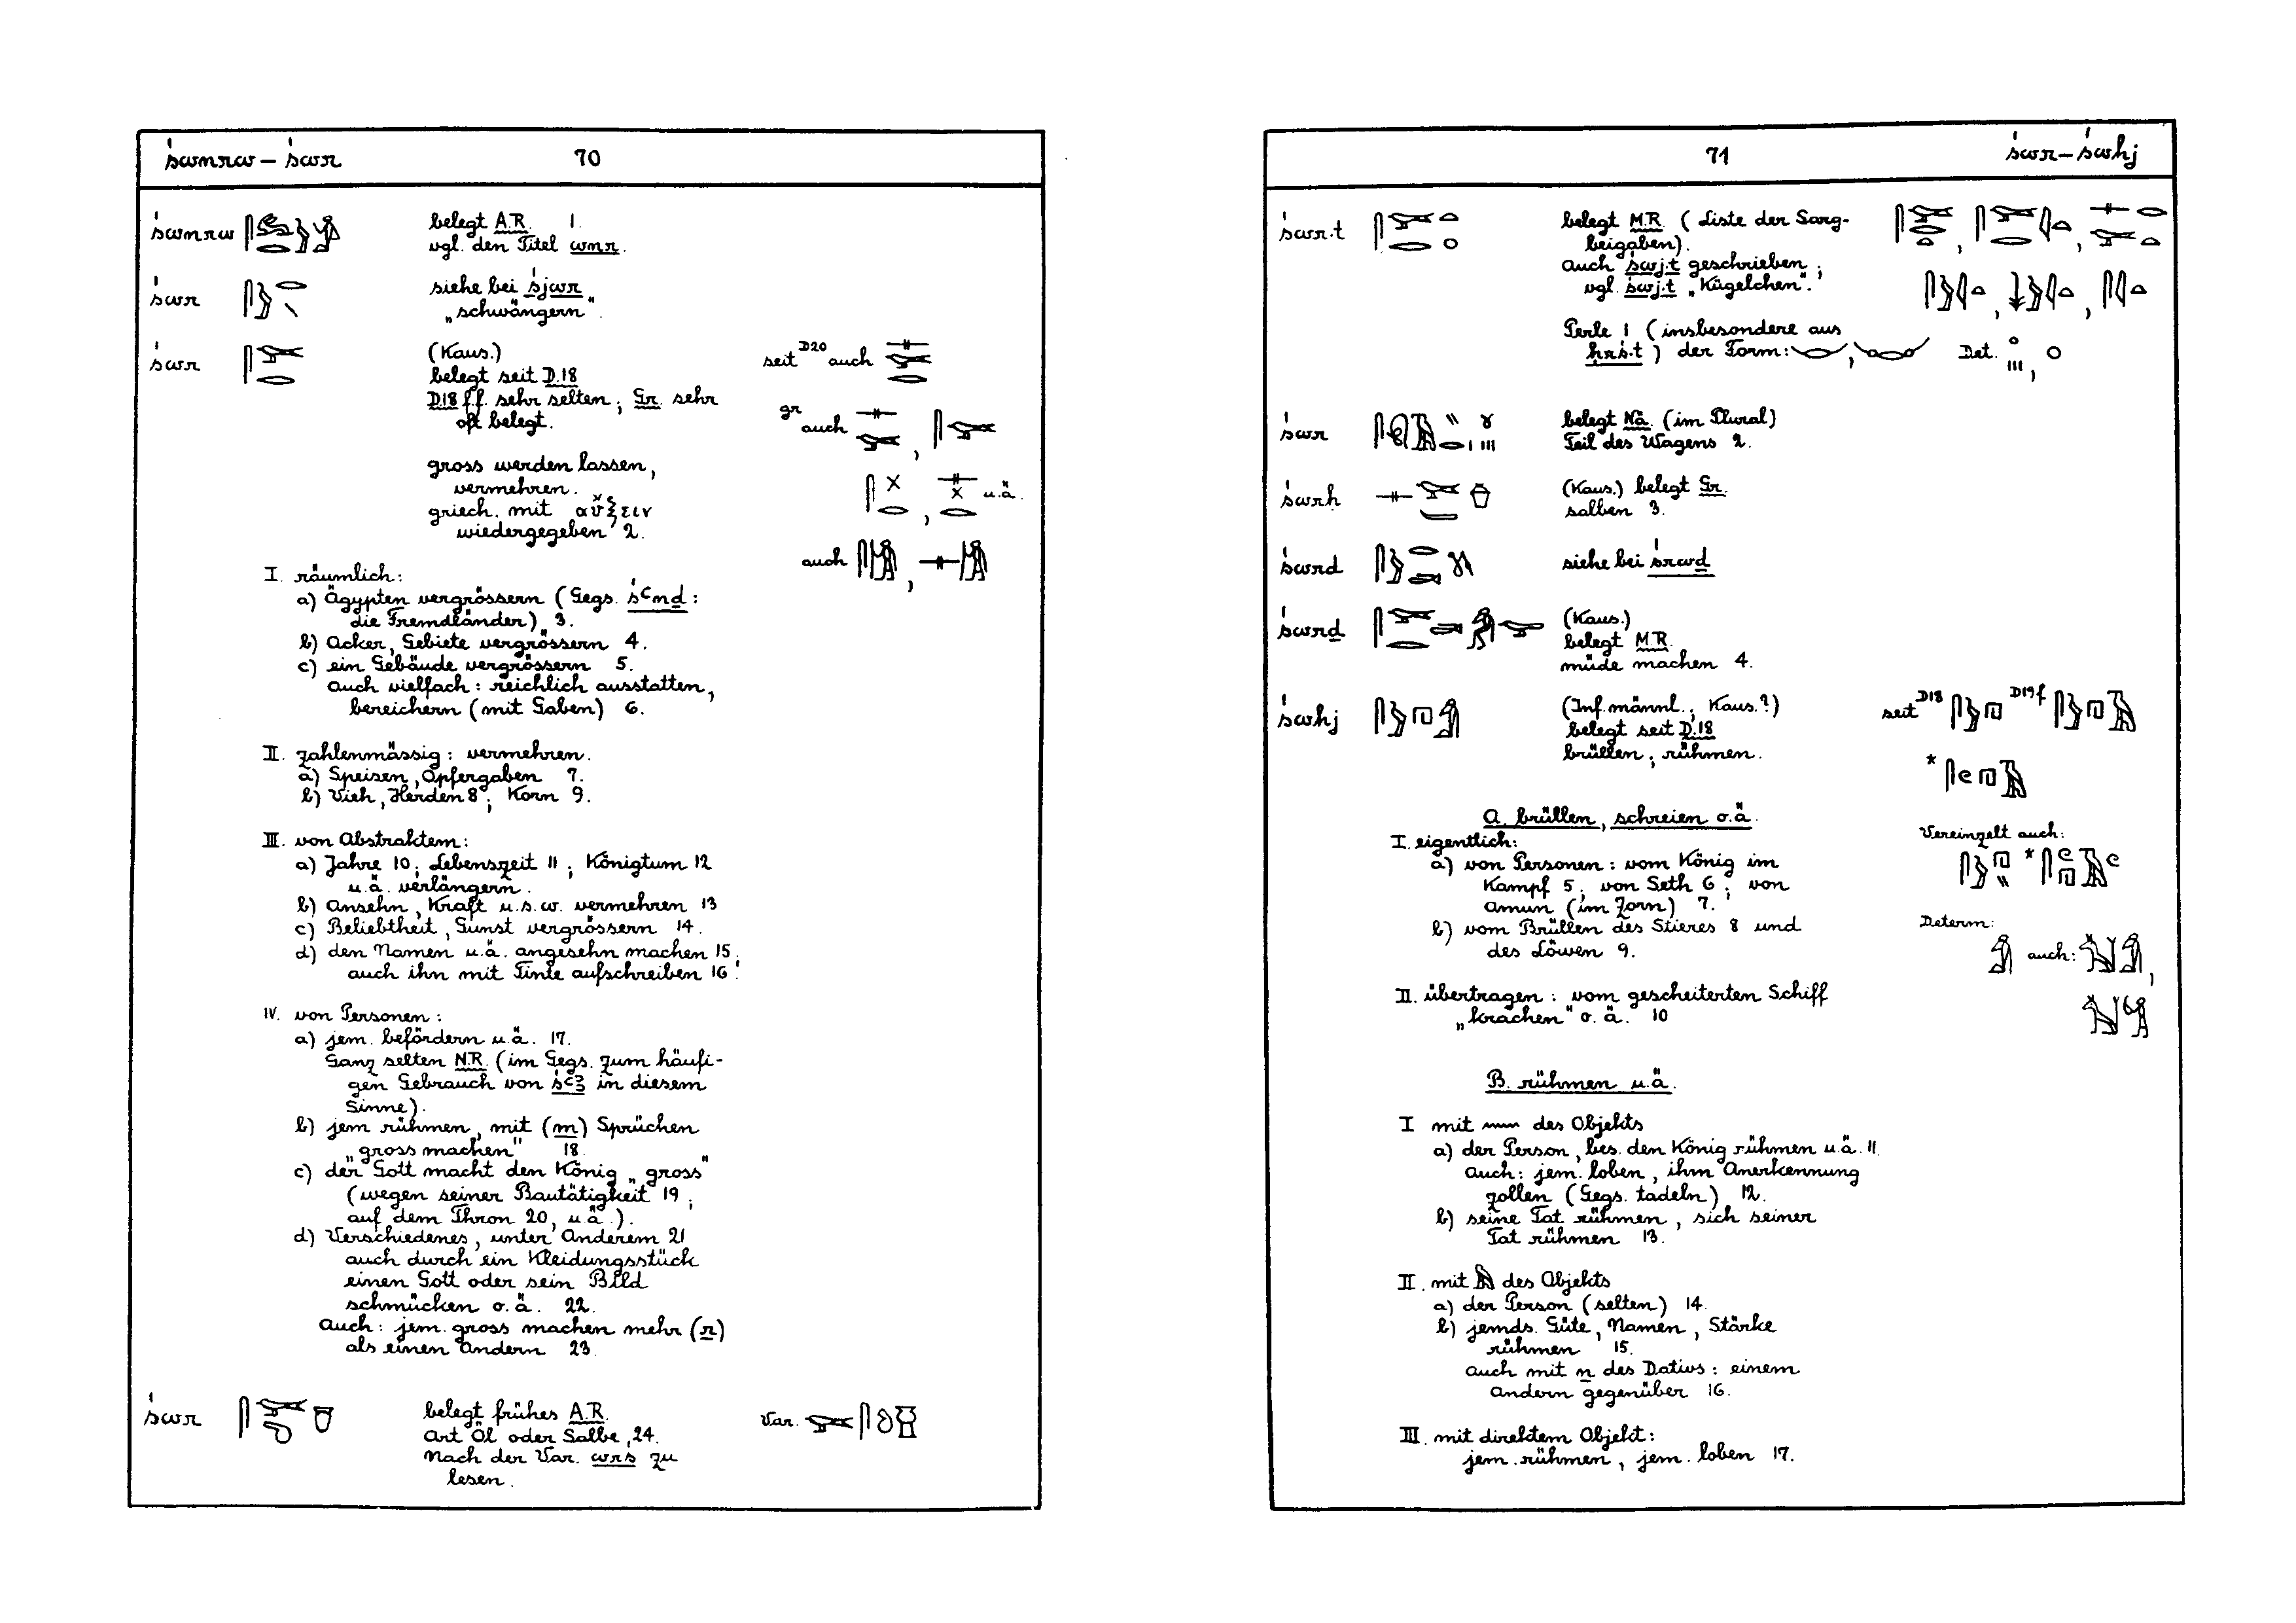 śwnrw – śwr 70
śwnrw belegt A.R. 1.
vgl. den Titel wnr.
śwr siehe bei śjwr
„schwängern".
śwr (Kaus.) seit D20 auch
belegt seit D.18
D18 ff. sehr selten; Gr. sehr
oft belegt. gr auch ,
gross werden lassen,
vermehren. , u.ä.
griech. mit αὔξειν
wiedergegeben 2.
auch ,
I. räumlich:
a) Ägypten vergrössern (Gegs. śꜥnḏ:
die Fremdländer) 3.
b) Acker, Gebiete vergrössern 4.
c) ein Gebäude vergrössern 5.
auch vielfach: reichlich ausstatten,
bereichern (mit Gaben) 6.
II. zahlenmässig: vermehren.
a) Speisen, Opfergaben 7.
b) Vieh, Herden 8; Korn 9.
III. von Abstraktem:
a) Jahre 10; Lebenszeit 11; Königtum 12
u.ä. verlängern.
b) Ansehn, Kraft u.s.w. vermehren 13
c) Beliebtheit, Gunst vergrössern 14.
d) den Namen u.ä. angesehn machen 15;
auch ihn mit Tinte aufschreiben 16.
IV. von Personen:
a) jem. befördern u.ä. 17.
Ganz selten N.R. (im Gegs. zum häufi-
gen Gebrauch von śꜥꜣ in diesem
Sinne).
b) jem rühmen, mit (m) Sprüchen
„gross machen" 18.
c) der Gott macht den König „gross"
(wegen seiner Bautätigkeit 19;
auf dem Thron 20, u.ä.).
d) Verschiedenes, unter Anderem 21
auch durch ein Kleidungsstück
einen Gott oder sein Bild
schmücken o.ä. 22.
Auch: jem. gross machen mehr (r)
als einen Andern 23.
śwr belegt frühes A.R. Var.
Art Öl oder Salbe, 24.
Nach der Var. wrś zu
lesen.
71 śwr – śwhj
śwr.t belegt M.R. (Liste der Sarg-
beigaben). , ,
auch śwj.t geschrieben;
vgl. śwj.t „Kügelchen". , ,
Perle 1 (insbesondere aus
ḥrś.t) der Form: , Det. ,
śwr belegt Nä. (im Plural)
Teil des Wagens 2.
śwrḥ (Kaus.) belegt Gr.
salben 3.
śwrd siehe bei śrwḏ
śwrḏ (Kaus.)
belegt M.R.
müde machen 4.
śwhj (Inf. männl.; Kaus.?) seit D18 D19f
belegt seit D.18
brüllen; rühmen.
*
A. brüllen, schreien o.ä.
I. eigentlich: Vereinzelt auch:
a) von Personen: vom König im *
Kampf 5; von Seth 6; von
Amun (im Zorn) 7.
b) vom Brüllen des Stieres 8 und Determ:
des Löwen 9. auch: ,
II. übertragen: vom gescheiterten Schiff
„krachen" o.ä. 10
B. rühmen u.ä.
I mit 𓈖 des Objekts
a) der Person, bes. den König rühmen u.ä. 11.
Auch: jem. loben, ihm Anerkennung
zollen (Gegs. tadeln) 12.
b) seine Tat rühmen, sich seiner
Tat rühmen 13.
II. mit 𓅓 des Objekts
a) der Person (selten) 14.
b) jemds. Güte, Namen, Stärke
rühmen 15.
auch mit n des Dativs: einem
Andern gegenüber 16.
III. mit direktem Objekt:
jem. rühmen, jem. loben 17.